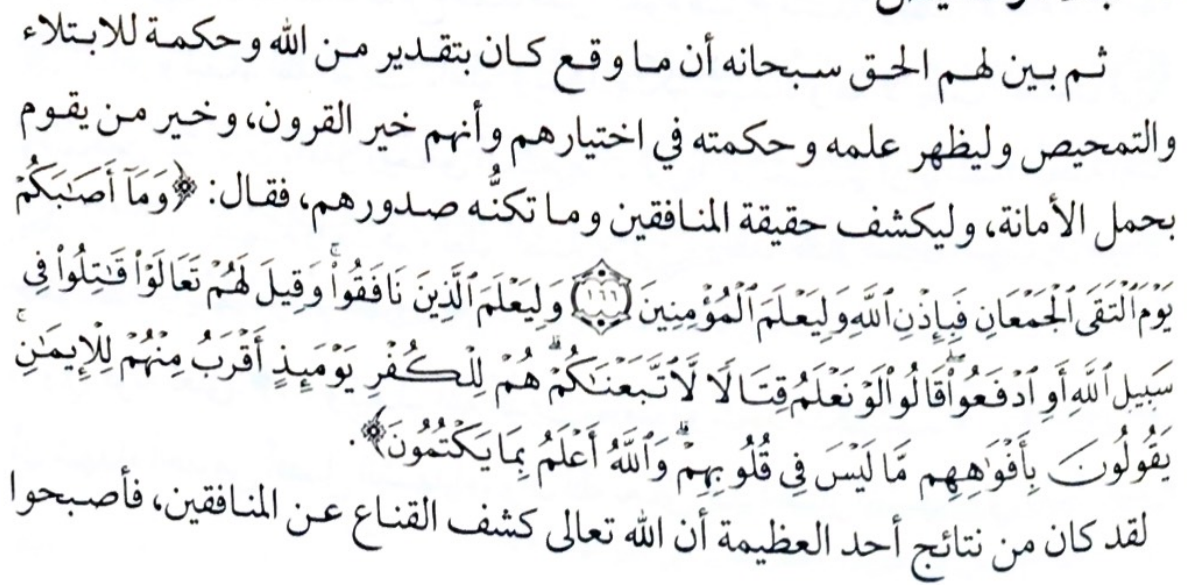 ثم بين لهم الحق سبحانه أن ما وقع كان بتقدير من الله وحكمة للابتلاء
والتمحيص وليظهر علمه وحكمته في اختيارهم وأنهم خير القرون، وخير من يقوم
بحمل الأمانة، وليكشف حقيقة المنافقين وما تكنُّه صدورهم، فقال: ﴿وَمَآ أَصَٰبَكُمْ
يَوْمَ ٱلْتَقَى ٱلْجَمْعَانِ فَبِإِذْنِ ٱللَّهِ وَلِيَعْلَمَ ٱلْمُؤْمِنِينَ ١٦٦ وَلِيَعْلَمَ ٱلَّذِينَ نَافَقُوا۟ ۚ وَقِيلَ لَهُمْ تَعَالَوْا۟ قَٰتِلُوا۟ فِى
سَبِيلِ ٱللَّهِ أَوِ ٱدْفَعُوا۟ ۖ قَالُوا۟ لَوْ نَعْلَمُ قِتَالًا لَّٱتَّبَعْنَٰكُمْ ۗ هُمْ لِلْكُفْرِ يَوْمَئِذٍ أَقْرَبُ مِنْهُمْ لِلْإِيمَٰنِ ۚ
يَقُولُونَ بِأَفْوَٰهِهِم مَّا لَيْسَ فِى قُلُوبِهِمْ ۗ وَٱللَّهُ أَعْلَمُ بِمَا يَكْتُمُونَ﴾.
لقد كان من نتائج أحد العظيمة أن الله تعالى كشف القناع عن المنافقين، فأصبحوا